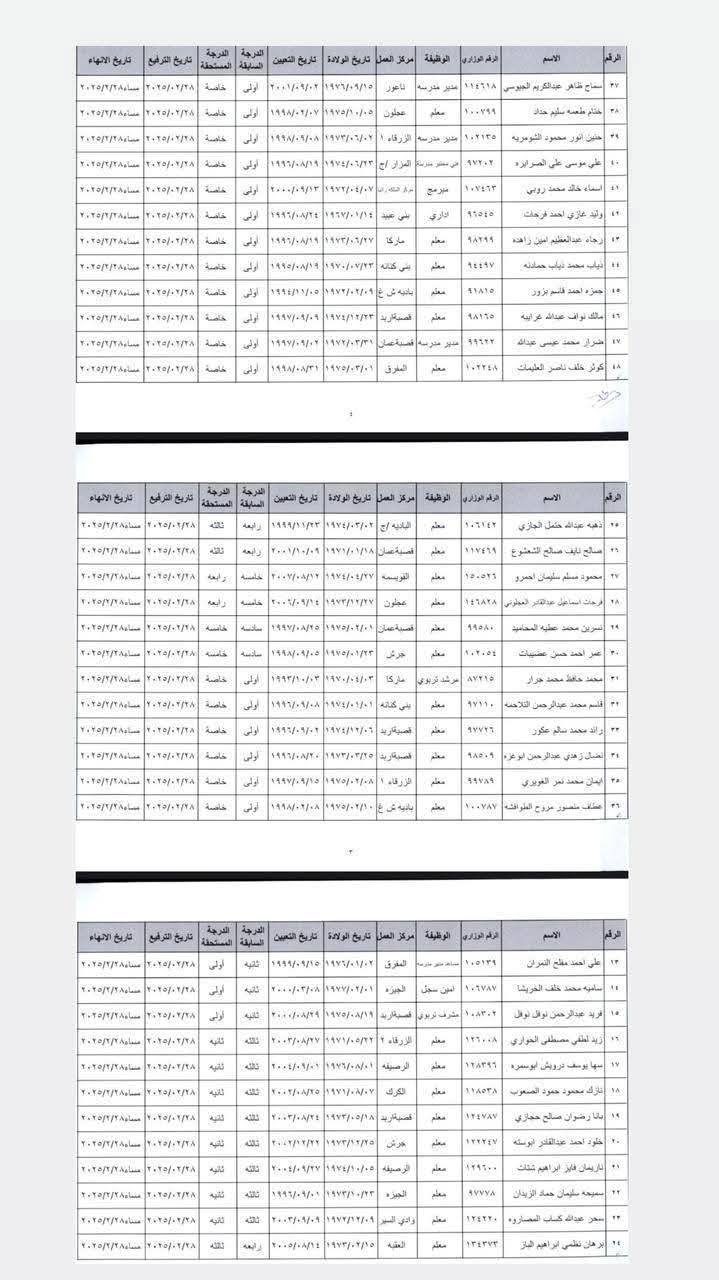 الرقم الاسم الرقم الوزاري الوظيفة مركز العمل تاريخ الولادة تاريخ التعيين الدرجة السابقة الدرجة المستحقة تاريخ الترفيع تاريخ الانهاء
٣٧ سماح ظاهر عبدالكريم الجيوسي ١١٤٦١٨ مدير مدرسه ناعور ١٩٧٦/٠٩/١٥ ٢٠٠١/٠٩/٠٢ أولى خاصة ٢٠٢٥/٠٢/٢٨ مساء٢٠٢٥/٢/٢٨
٣٨ ختام طعمه سليم حداد ١٠٠٧٩٩ معلم عجلون ١٩٧٥/١٠/٠٥ ١٩٩٨/٠٢/٠٧ أولى خاصة ٢٠٢٥/٠٢/٢٨ مساء٢٠٢٥/٢/٢٨
٣٩ حنين انور محمود الشومريه ١٠٢١٣٥ مدير مدرسه الزرقاء ١ ١٩٧٣/٠٦/٠٢ ١٩٩٨/٠٩/٠٨ أولى خاصة ٢٠٢٥/٠٢/٢٨ مساء٢٠٢٥/٢/٢٨
٤٠ علي موسى علي الصرايره ٩٧٢٠٢ فني مختبر مدرسة المزار /ج ١٩٧٤/٠٦/٢٣ ١٩٩٦/٠٨/١٩ أولى خاصة ٢٠٢٥/٠٢/٢٨ مساء٢٠٢٥/٢/٢٨
٤١ اسماء خالد محمد روبي ١٠٧٤٦٣ مبرمج مركز الملكه رانيا ١٩٧٢/٠٤/٠٧ ٢٠٠٠/٠٩/١٣ أولى خاصة ٢٠٢٥/٠٢/٢٨ مساء٢٠٢٥/٢/٢٨
٤٢ وليد غازي احمد فرحات ٩٦٥٤٥ اداري بني عبيد ١٩٦٧/٠١/١٤ ١٩٩٦/٠٨/٢٤ أولى خاصة ٢٠٢٥/٠٢/٢٨ مساء٢٠٢٥/٢/٢٨
٤٣ رجاء عبدالعظيم امين زاهده ٩٨٢٩٩ معلم ماركا ١٩٧٣/٠٦/٢٧ ١٩٩٦/٠٨/١٩ أولى خاصة ٢٠٢٥/٠٢/٢٨ مساء٢٠٢٥/٢/٢٨
٤٤ ذياب محمد ذياب حمادنه ٩٤٤٩٧ معلم بني كنانه ١٩٧٠/٠٧/٢٣ ١٩٩٥/٠٨/١٩ أولى خاصة ٢٠٢٥/٠٢/٢٨ مساء٢٠٢٥/٢/٢٨
٤٥ حمزه احمد قاسم بزور ٩١٨١٥ معلم باديه ش غ ١٩٧٢/٠٢/٠٩ ١٩٩٤/١١/٠٥ أولى خاصة ٢٠٢٥/٠٢/٢٨ مساء٢٠٢٥/٢/٢٨
٤٦ مالك نواف عبدالله غرايبه ٩٨١٦٥ معلم قصبةاربد ١٩٧٤/١٢/٢٣ ١٩٩٧/٠٩/٠٩ أولى خاصة ٢٠٢٥/٠٢/٢٨ مساء٢٠٢٥/٢/٢٨
٤٧ ضرار محمد عيسى عبدالله ٩٩٦٢٢ مدير مدرسه قصبةعمان ١٩٧٢/٠٣/٣١ ١٩٩٧/٠٩/٠٢ أولى خاصة ٢٠٢٥/٠٢/٢٨ مساء٢٠٢٥/٢/٢٨
٤٨ كوثر خلف ناصر العليمات ١٠٢٢٤٨ معلم المفرق ١٩٧٥/٠٣/٠١ ١٩٩٨/٠٨/٣١ أولى خاصة ٢٠٢٥/٠٢/٢٨ مساء٢٠٢٥/٢/٢٨
٤
الرقم الاسم الرقم الوزاري الوظيفة مركز العمل تاريخ الولادة تاريخ التعيين الدرجة السابقة الدرجة المستحقة تاريخ الترفيع تاريخ الانهاء
٢٥ ذهبه عبدالله حتمل الجازي ١٠٦١٤٢ معلم الباديه /ج ١٩٧٤/٠٣/٠٢ ١٩٩٩/١١/٢٣ رابعه ثالثه ٢٠٢٥/٠٢/٢٨ مساء٢٠٢٥/٢/٢٨
٢٦ صالح نايف صالح الشعشوع ١١٧٤٦٩ معلم قصبةعمان ١٩٧١/٠١/١٨ ٢٠٠١/١٠/٠٩ رابعه ثالثه ٢٠٢٥/٠٢/٢٨ مساء٢٠٢٥/٢/٢٨
٢٧ محمود مسلم سليمان احمرو ١٥٠٥٢٦ معلم القويسمه ١٩٧٤/٠٤/٢٧ ٢٠٠٧/٠٨/١٢ خامسه رابعه ٢٠٢٥/٠٢/٢٨ مساء٢٠٢٥/٢/٢٨
٢٨ فرحات اسماعيل عبدالقادر العجلوني ١٤٦٨٢٨ معلم عجلون ١٩٧٣/١٢/٢٧ ٢٠٠٦/٠٩/١٤ خامسه رابعه ٢٠٢٥/٠٢/٢٨ مساء٢٠٢٥/٢/٢٨
٢٩ نسرين محمد عطيه المحاميد ٩٩٥٨٠ معلم قصبةعمان ١٩٧٥/٠٢/٠١ ١٩٩٧/٠٨/٢٥ سادسه خامسه ٢٠٢٥/٠٢/٢٨ مساء٢٠٢٥/٢/٢٨
٣٠ عمر احمد حسن عضيبات ١٠٢٠٥٤ معلم جرش ١٩٧٥/٠١/٢٣ ١٩٩٨/٠٩/٠٥ سادسه خامسه ٢٠٢٥/٠٢/٢٨ مساء٢٠٢٥/٢/٢٨
٣١ محمد حافظ محمد جرار ٨٧٢١٥ مرشد تربوي ماركا ١٩٧٠/٠٤/٠٣ ١٩٩٣/١٠/٠٣ أولى خاصة ٢٠٢٥/٠٢/٢٨ مساء٢٠٢٥/٢/٢٨
٣٢ قاسم محمد عبدالرحمن التلاحمه ٩٧١١٠ معلم بني كنانه ١٩٧٤/٠١/٠١ ١٩٩٦/٠٩/٠٨ أولى خاصة ٢٠٢٥/٠٢/٢٨ مساء٢٠٢٥/٢/٢٨
٣٣ رائد محمد سالم عكور ٩٧٧٢٦ معلم قصبةاربد ١٩٧٤/١٢/٠٦ ١٩٩٦/٠٩/٠٢ أولى خاصة ٢٠٢٥/٠٢/٢٨ مساء٢٠٢٥/٢/٢٨
٣٤ نضال زهدي عبدالرحمن ابوعزه ٩٨٥٠٩ معلم قصبةاربد ١٩٧٣/٠٣/٢٥ ١٩٩٦/٠٨/٢٠ أولى خاصة ٢٠٢٥/٠٢/٢٨ مساء٢٠٢٥/٢/٢٨
٣٥ ايمان محمد نمر الغويري ٩٩٧٨٩ معلم الزرقاء ١ ١٩٧٥/٠٢/٠٨ ١٩٩٧/٠٩/١٥ أولى خاصة ٢٠٢٥/٠٢/٢٨ مساء٢٠٢٥/٢/٢٨
٣٦ عطاف منصور مروح الطوافشه ١٠٠٧٨٧ معلم باديه ش غ ١٩٧٥/٠٢/١٠ ١٩٩٨/٠٢/٠٨ أولى خاصة ٢٠٢٥/٠٢/٢٨ مساء٢٠٢٥/٢/٢٨
٣
الرقم الاسم الرقم الوزاري الوظيفة مركز العمل تاريخ الولادة تاريخ التعيين الدرجة السابقة الدرجة المستحقة تاريخ الترفيع تاريخ الانهاء
١٣ علي احمد مفلح النمران ١٠٥١٣٩ مساعد مدير مدرسة المفرق ١٩٧٦/٠١/٠٢ ١٩٩٩/٠٩/١٥ ثانيه أولى ٢٠٢٥/٠٢/٢٨ مساء٢٠٢٥/٢/٢٨
١٤ ساميه محمد خلف الخريشا ١٠٦٧٨٧ امين سجل الجيزه ١٩٧٧/٠٢/٠١ ٢٠٠٠/٠٣/٠٨ ثانيه أولى ٢٠٢٥/٠٢/٢٨ مساء٢٠٢٥/٢/٢٨
١٥ فريد عبدالرحمن نوفل نوفل ١٠٨٣٠٢ مشرف تربوي قصبةاربد ١٩٧٥/٠٨/١٩ ٢٠٠٠/٠٨/٢٩ ثانيه أولى ٢٠٢٥/٠٢/٢٨ مساء٢٠٢٥/٢/٢٨
١٦ زيد لطفي مصطفى الحواري ١٢٦٠٠٨ معلم الزرقاء ٢ ١٩٧١/٠٥/٢٢ ٢٠٠٣/٠٨/٢٧ ثالثه ثانيه ٢٠٢٥/٠٢/٢٨ مساء٢٠٢٥/٢/٢٨
١٧ سها يوسف درويش ابوسمره ١٢٨٣٩٦ معلم الرصيفه ١٩٧٦/٠٨/٠١ ٢٠٠٤/٠٩/٠١ ثالثه ثانيه ٢٠٢٥/٠٢/٢٨ مساء٢٠٢٥/٢/٢٨
١٨ نازك محمود حمود الصعوب ١١٨٥٣٨ معلم الكرك ١٩٧١/٠٨/٠٧ ٢٠٠٢/٠٨/٢٥ ثالثه ثانيه ٢٠٢٥/٠٢/٢٨ مساء٢٠٢٥/٢/٢٨
١٩ بانا رضوان صالح حجازي ١٢٤٧٨٧ معلم قصبةاربد ١٩٧٣/٠٥/١٨ ٢٠٠٣/٠٨/٢٤ ثالثه ثانيه ٢٠٢٥/٠٢/٢٨ مساء٢٠٢٥/٢/٢٨
٢٠ خلود احمد عبدالقادر ابوسته ١٢٢٢٤٧ معلم جرش ١٩٧٣/١٢/٢٥ ٢٠٠٢/١٢/٢٢ ثالثه ثانيه ٢٠٢٥/٠٢/٢٨ مساء٢٠٢٥/٢/٢٨
٢١ ناريمان فايز ابراهيم شتات ١٢٩٦٠٠ معلم الرصيفه ١٩٧٤/١٠/٠٥ ٢٠٠٤/٠٩/٢٧ ثالثه ثانيه ٢٠٢٥/٠٢/٢٨ مساء٢٠٢٥/٢/٢٨
٢٢ سميحه سليمان حماد الزيدان ٩٧٧٧٨ معلم الجيزه ١٩٧٣/١٠/٢٣ ١٩٩٦/٠٩/٠١ ثالثه ثانيه ٢٠٢٥/٠٢/٢٨ مساء٢٠٢٥/٢/٢٨
٢٣ سحر عبدالله كساب المصاروه ١٢٤٢٢٠ معلم وادي السير ١٩٧٢/١٢/٠٩ ٢٠٠٣/٠٩/٠٩ ثالثه ثانيه ٢٠٢٥/٠٢/٢٨ مساء٢٠٢٥/٢/٢٨
٢٤ برهان نظمي ابراهيم الباز ١٣٤٣٧٣ معلم العقبه ١٩٧٣/٠٢/١٥ ٢٠٠٥/٠٨/١٤ رابعه ثالثه ٢٠٢٥/٠٢/٢٨ مساء٢٠٢٥/٢/٢٨